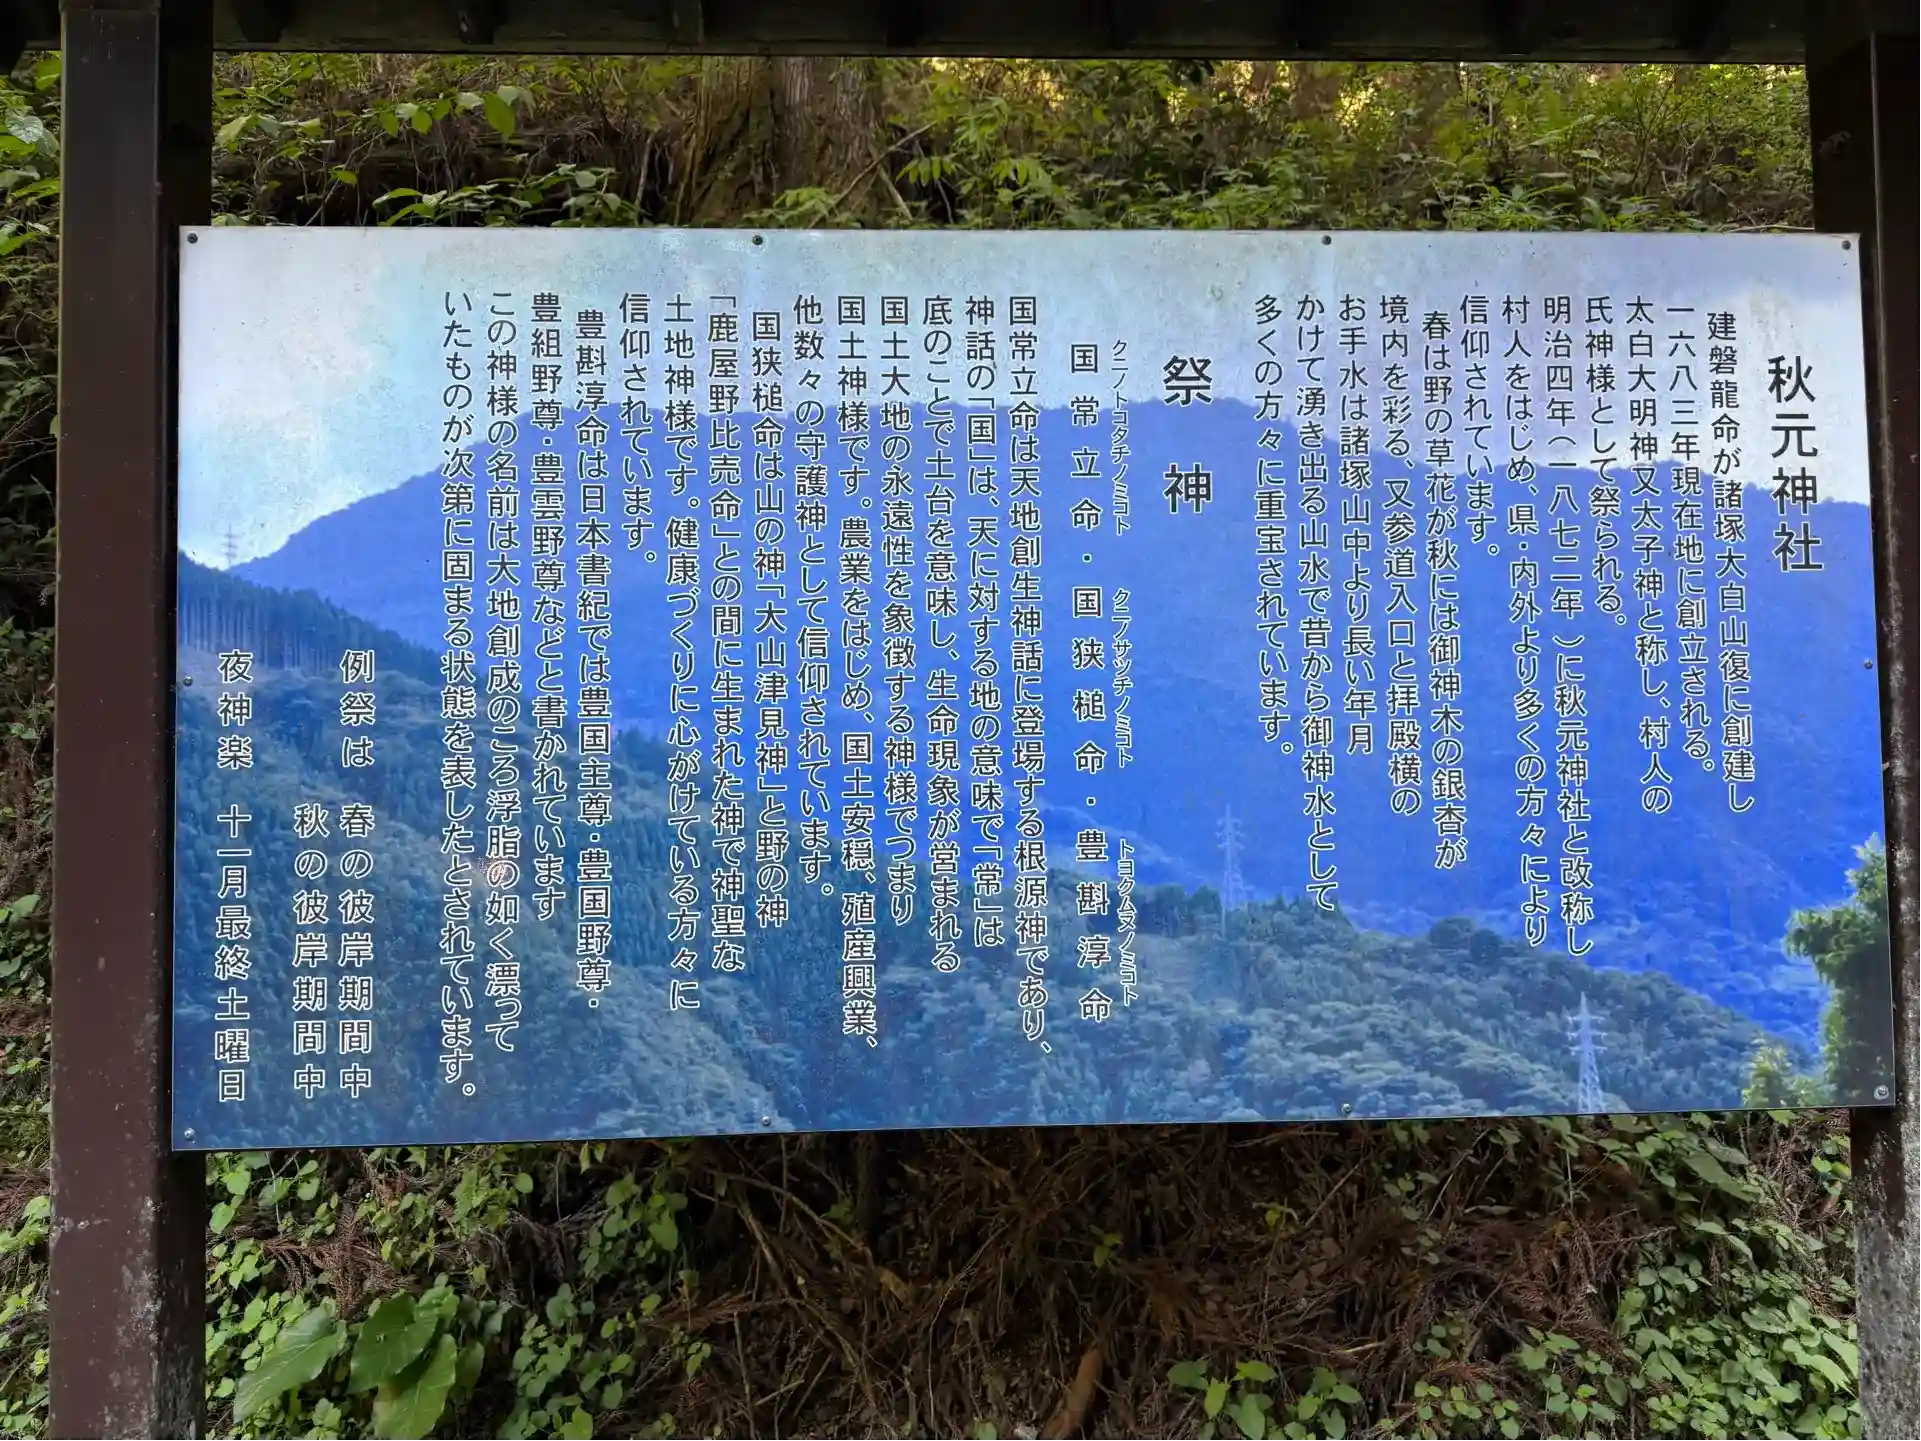 秋元神社
建磐龍命が諸塚大白山復に創建し
一六八三年現在地に創立される。
太白大明神又太子神と称し、村人の
氏神様として祭られる。
明治四年(一八七二年)に秋元神社と改称し
村人をはじめ、県・内外より多くの方々により
信仰されています。
春は野の草花が秋には御神木の銀杏が
境内を彩る、又参道入口と拝殿横の
お手水は諸塚山中より長い年月
かけて湧き出る山水で昔から御神水として
多くの方々に重宝されています。
祭神
クニノトコタチノミコト クニノサツチノミコト トヨクムヌノミコト
国常立命・国狭槌命・豊斟淳命
国常立命は天地創生神話に登場する根源神であり、
神話の「国」は、天に対する地の意味で「常」は
底のことで土台を意味し、生命現象が営まれる
国土大地の永遠性を象徴する神様でつまり
国土神様です。農業をはじめ、国土安穏、殖産興業、
他数々の守護神として信仰されています。
国狭槌命は山の神「大山津見神」と野の神
「鹿屋野比売命」との間に生まれた神で神聖な
土地神様です。健康づくりに心がけている方々に
信仰されています。
豊斟淳命は日本書紀では豊国主尊・豊国野尊・
豊組野尊・豊雲野尊などと書かれています
この神様の名前は大地創成のころ浮脂の如く漂って
いたものが次第に固まる状態を表したとされています。
例祭は 春の彼岸期間中
秋の彼岸期間中
夜神楽 十一月最終土曜日